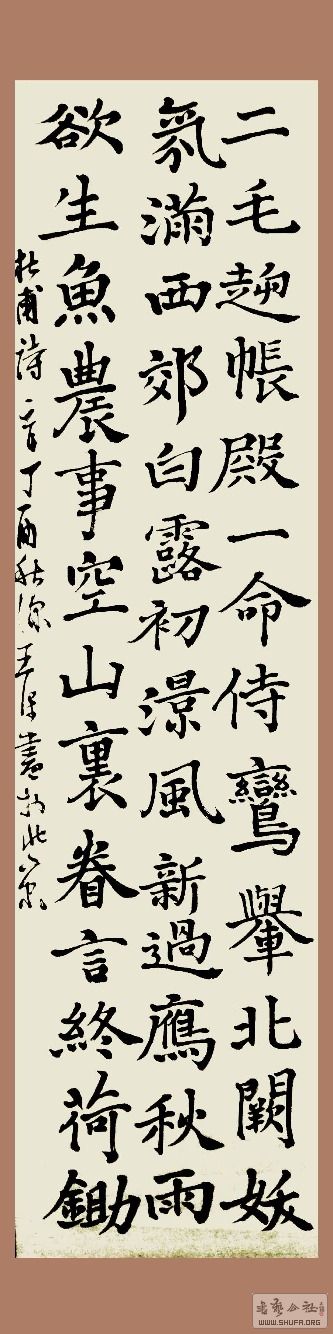 二毛趨帳殿一命侍鸞轝北闕妖
氛滿西郊白露初涼風新過鴈秋雨
欲生魚農事空山裏眷言終荷鋤
杜甫詩一首丁酉秋深王於北京
書藝公社
WWW.SHUFA.ORG